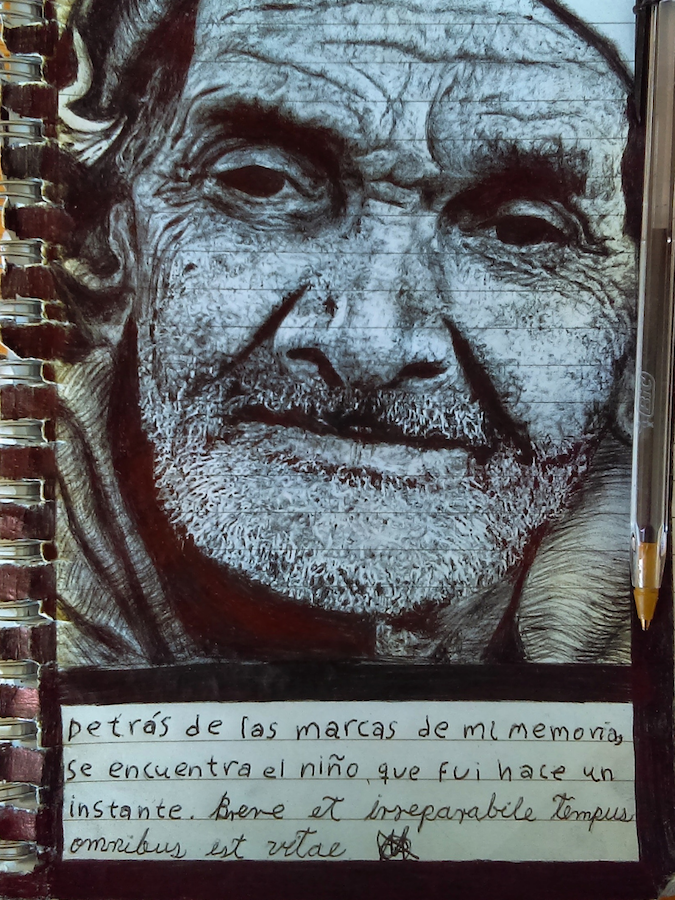 Detrás de las marcas de mi memoria,
se encuentra el niño, que fui hace un
instante. Breve et irreparabile tempus
omnibus est vitae
BIC